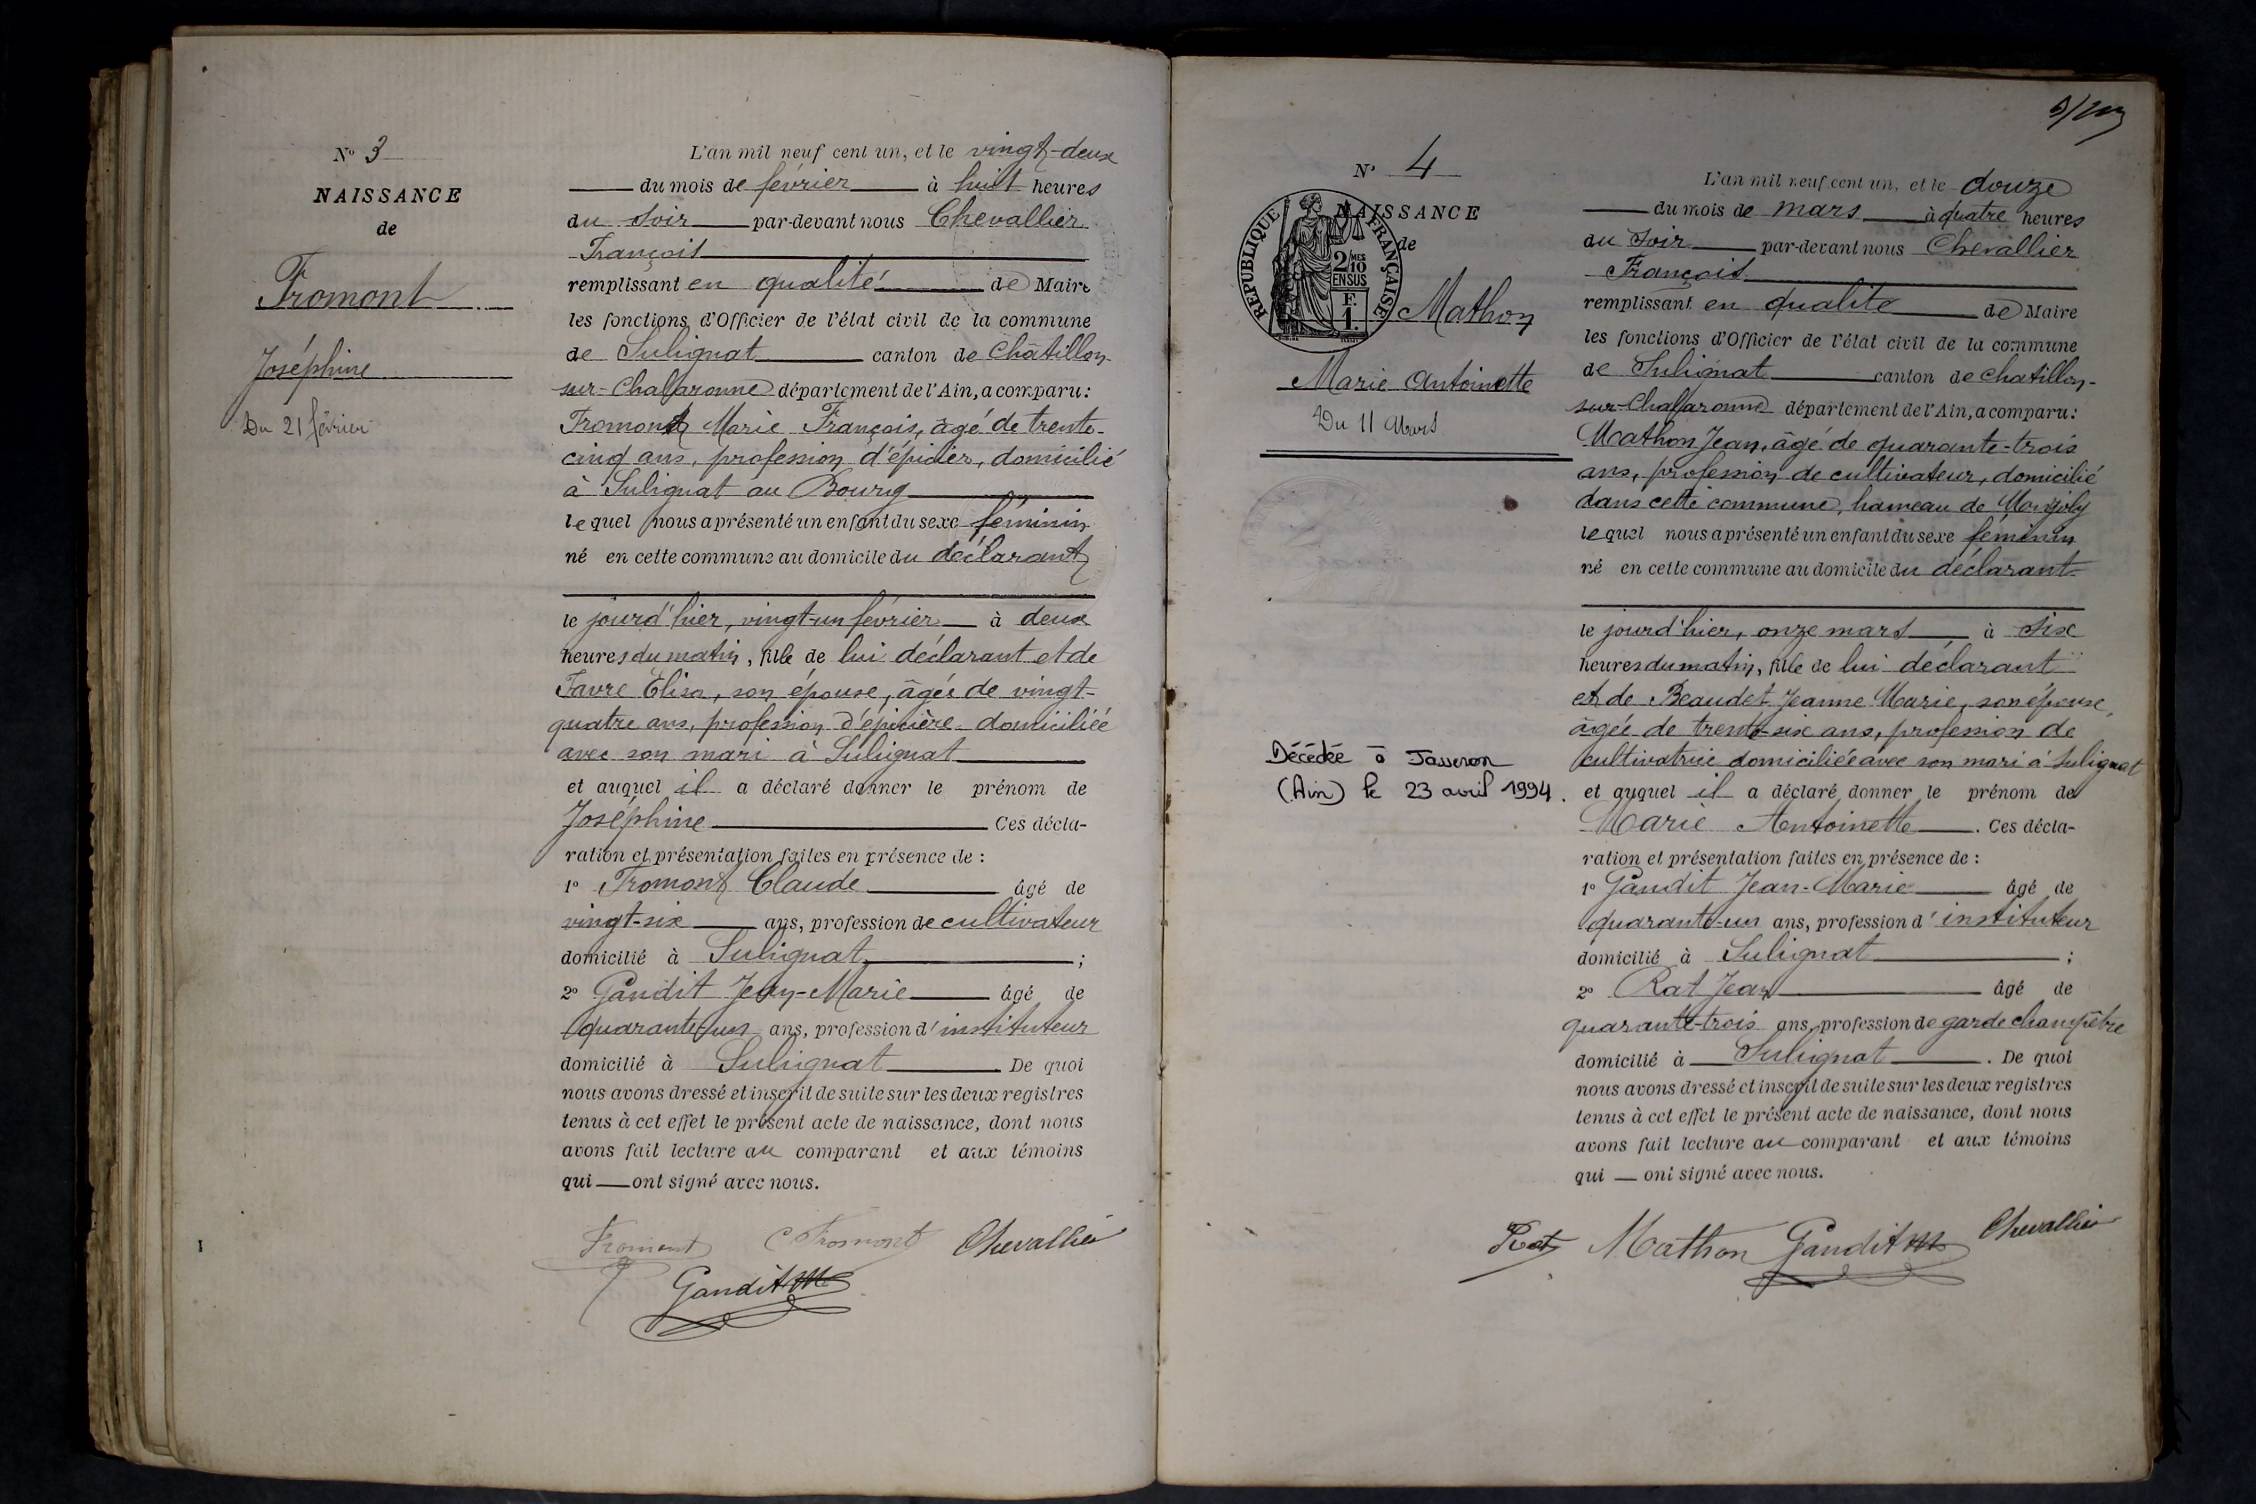 N° 3
NAISSANCE
de
Fromont
Joséphine
Du 21 février
L'an mil neuf cent un, et le vingt-deux
du mois de février à huit heures
du soir par-devant nous Chevallier
François
remplissant en qualité de Maire
les fonctions d'Officier de l'état civil de la commune
de Sulignat canton de Châtillon-
sur-Chalaronne département de l'Ain, a comparu:
Fromont Marie François, âgé de trente-
cinq ans, profession d'épicier, domicilié
à Sulignat au Bourg
lequel nous a présenté un enfant du sexe féminin
né en cette commune au domicile du déclarant
le jourd'hier, vingt-un février à deux
heures du matin, fille de lui déclarant et de
Favre Élisa, son épouse, âgée de vingt-
quatre ans, profession d'épicière domiciliée
avec son mari à Sulignat
et auquel il a déclaré donner le prénom de
Joséphine Ces décla-
ration et présentation faites en présence de :
1° Fromont Claude âgé de
vingt-six ans, profession de cultivateur
domicilié à Sulignat ;
2° Gandit Jean-Marie âgé de
quarante-un ans, profession d'instituteur
domicilié à Sulignat De quoi
nous avons dressé et inscrit de suite sur les deux registres
tenus à cet effet le présent acte de naissance, dont nous
avons fait lecture au comparant et aux témoins
qui ont signé avec nous.
Fromont C Fromont Chevallier
Gandit
N° 4
NAISSANCE
de
RÉPUBLIQUE FRANÇAISE
2/10 MES
EN SUS
F.
1.
Mathon
Marie Antoinette
Du 11 Mars
Décédée à Jasseron
(Ain) le 23 avril 1994.
L'an mil neuf cent un, et le douze
du mois de mars à quatre heures
du soir par-devant nous Chevallier
François
remplissant en qualité de Maire
les fonctions d'Officier de l'état civil de la commune
de Sulignat canton de Chatillon-
sur-Chalaronne département de l'Ain, a comparu:
Mathon Jean, âgé de quarante-trois
ans, profession de cultivateur, domicilié
dans cette commune, hameau de
lequel nous a présenté un enfant du sexe féminin
né en cette commune au domicile du déclarant
le jourd'hier, onze mars à six
heures du matin, fille de lui déclarant
et de Beaudet Jeanne Marie, son épouse,
âgée de trente-six ans, profession de
cultivatrice domiciliée avec son mari à Sulignat
et auquel il a déclaré donner le prénom de
Marie Antoinette . Ces décla-
ration et présentation faites en présence de :
1° Gandit Jean-Marie âgé de
quarante-un ans, profession d'instituteur
domicilié à Sulignat ;
2° Rat Jean âgé de
quarante-trois ans, profession de garde champêtre
domicilié à Sulignat . De quoi
nous avons dressé et inscrit de suite sur les deux registres
tenus à cet effet le présent acte de naissance, dont nous
avons fait lecture au comparant et aux témoins
qui ont signé avec nous.
Rat Mathon Gandit Chevallier